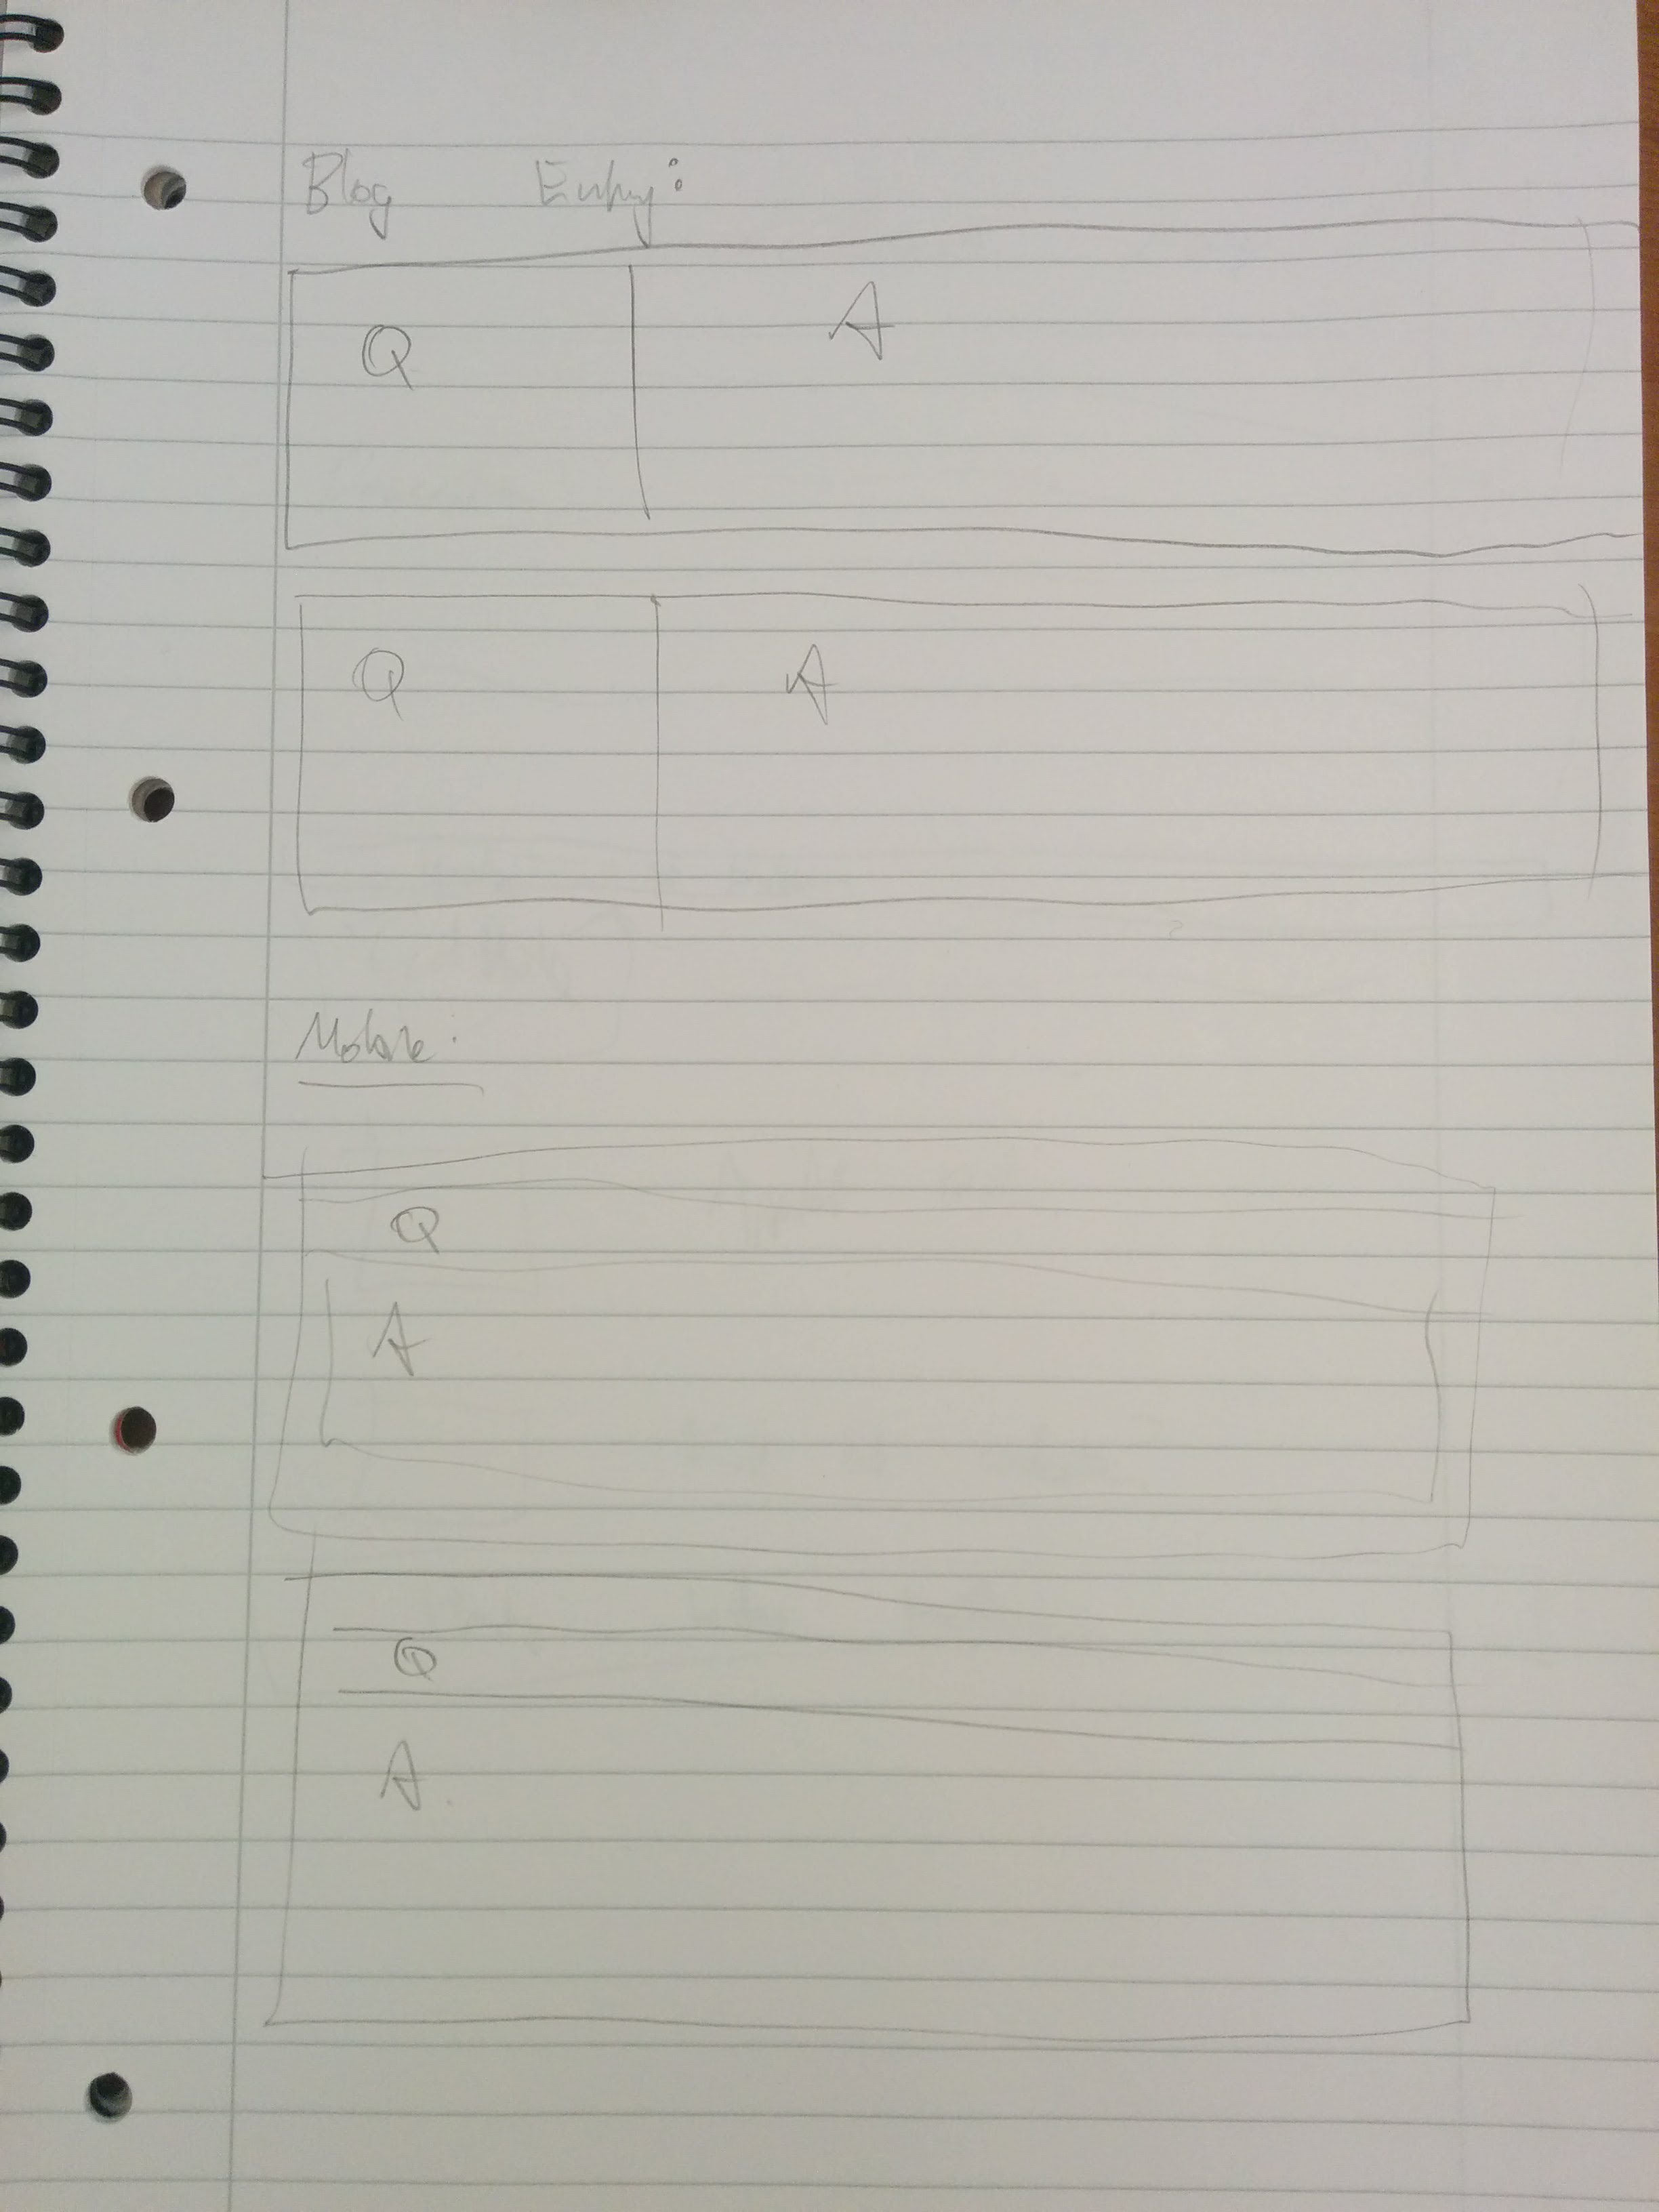 Blog Entry:
Q A
Q A
Mobile:
Q
A
Q
A